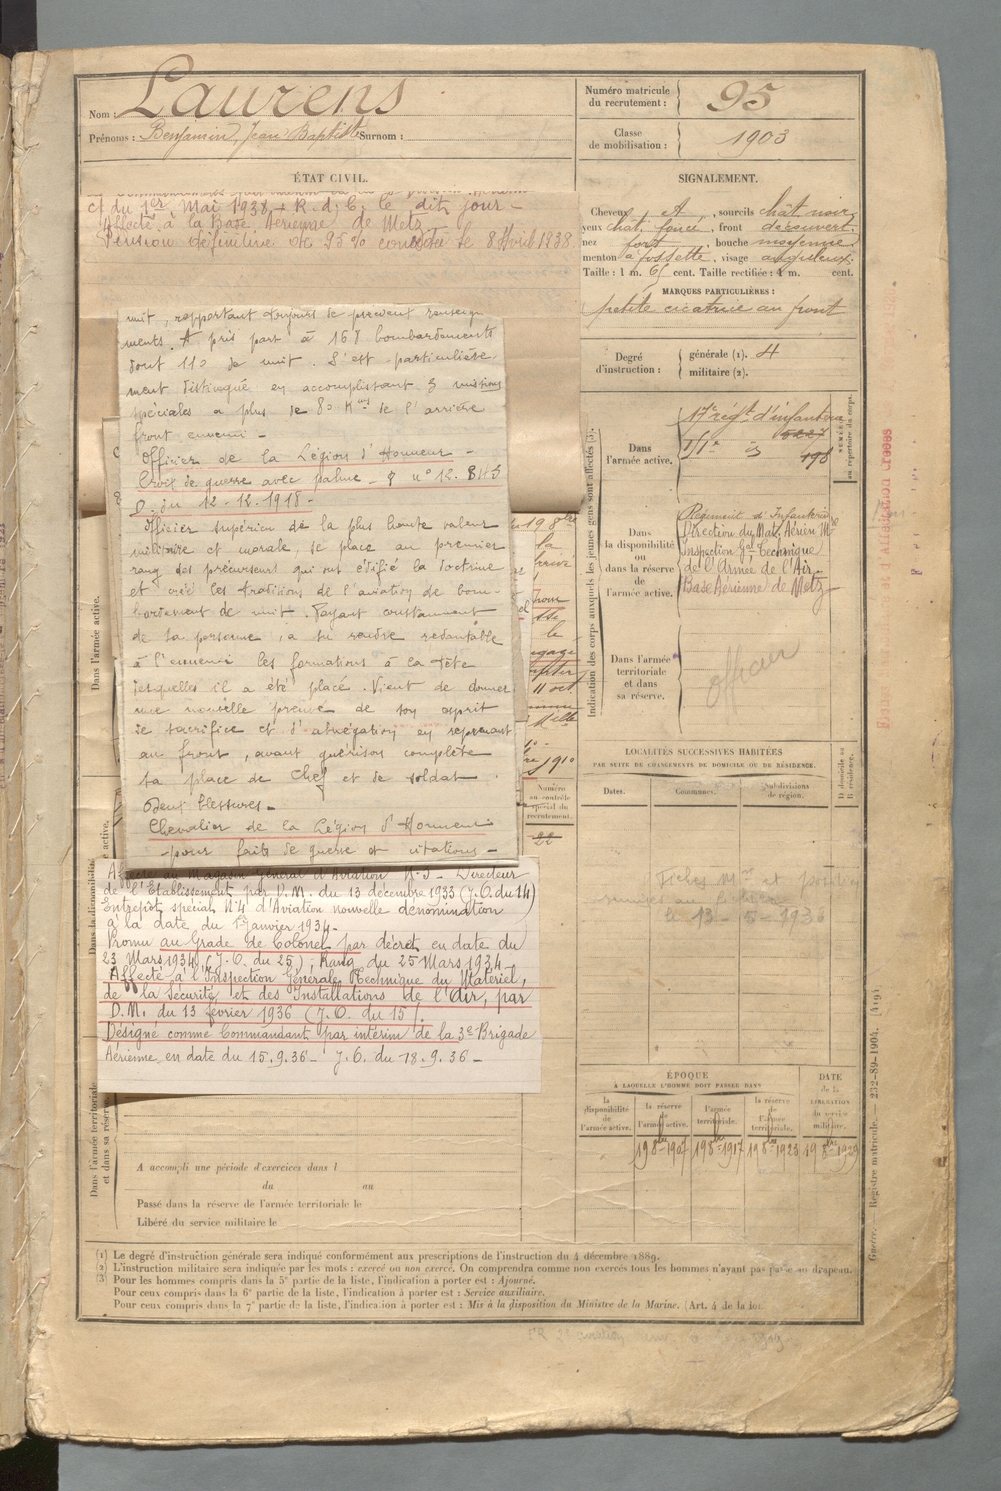 Nom : Laurens
Prénoms : Benjamin, Jean Baptiste Surnom :
Numéro matricule du recrutement : 95
Classe de mobilisation : 1903
ÉTAT CIVIL.
et du 1er Mai 1938 + R. d. C. le dit jour -
Affecté à la Base Aérienne de Metz
Pension définitive de 95 % concédée le 8 Avril 1938.
nuit, rapportant toujours de précieux renseigne
ments. A pris part à 167 bombardements
dont 110 de nuit. S'est particulière
ment distingué en accomplissant 3 missions
spéciales à plus de 80 Kms de l'arrière
front ennemi -
Officier de la Légion d'Honneur -
Croix de guerre avec palme - J n° 12.843
D. du 12-12-1918 -
Officier supérieur de la plus haute valeur
militaire et morale, se place au premier
rang des précurseurs qui ont édifié la doctrine
et créé les traditions de l'aviation de bom-
bardement de nuit. Payant constamment
de sa personne, a su rendre redoutable
à l'ennemi les formations à la tête
desquelles il a été placé. Vient de donner
une nouvelle preuve de son esprit
de sacrifice et d'abnégation en reprenant
au front, avant guérison complète
sa place de Chef et de soldat.
Deux blessures -
Chevalier de la Légion d'Honneur
pour faits de guerre et citations -
Affecté au Magasin Général d'Aviation N°3 - Directeur
de l'Etablissement par D.M. du 13 décembre 1933 (J.O. du 14)
Entrepôt spécial N°4 d'Aviation nouvelle dénomination
à la date du 1er Janvier 1934 -
Promu au Grade de Colonel par décret en date du
23 Mars 1934 (J.O. du 25) ; Rang du 25 Mars 1934
Affecté à l'Inspection Générale Technique du Matériel,
de la Sécurité et des Installations de l'Air, par
D.M. du 13 février 1936 (J.O. du 15).
Désigné comme Commandant par intérim de la 3e Brigade
Aérienne en date du 15.9.36 - J.O. du 18.9.36 -
Dans l'armée active.
Dans l'armée territoriale et dans sa réserve
A accompli une période d'exercices dans l
du au
Passé dans la réserve de l'armée territoriale le
Libéré du service militaire le
la
le
11 oct
1910
Numéro au contrôle spécial du recrutement.
22
SIGNALEMENT.
Cheveux , sourcils chât. noir,
yeux chât. foncé, front découvert,
nez fort, bouche moyenne,
menton à fossette, visage anguleux.
Taille : 1 m. 65 cent. Taille rectifiée : 1 m. cent.
MARQUES PARTICULIÈRES :
petite cicatrice au front
Degré d'instruction :
générale (1). 4
militaire (2).
Indication des corps auxquels les jeunes gens sont affectés (3).
NUMÉROS au répertoire du corps.
Dans l'armée active.
17e régt d'infanterie
5227
198
Dans la disponibilité ou dans la réserve de l'armée active.
Régiment d'Infanterie
Direction du Mat. Aérien Mre
Inspection Gale Technique
de l'Armée de l'Air
Base Aérienne de Metz
Dans l'armée territoriale et dans sa réserve.
officier
LOCALITÉS SUCCESSIVES HABITÉES
PAR SUITE DE CHANGEMENTS DE DOMICILE OU DE RÉSIDENCE.
Dates.
Communes.
Subdivisions de région.
D domicile ou R résidence.
le 13-5-1936
ÉPOQUE
À LAQUELLE L'HOMME DOIT PASSER DANS
DATE de la LIBÉRATION du service militaire.
la disponibilité de l'armée active.
la réserve de l'armée active.
l'armée territoriale.
la réserve de l'armée territoriale.
19 8bre 1907
19 8bre 1917
19 8bre 1923
19 8bre 1929
(1) Le degré d'instruction générale sera indiqué conformément aux prescriptions de l'instruction du 4 décembre 1889.
(2) L'instruction militaire sera indiquée par les mots : exercé ou non exercé. On comprendra comme non exercés tous les hommes n'ayant pas passé au drapeau.
(3) Pour les hommes compris dans la 5e partie de la liste, l'indication à porter est : Ajourné.
Pour ceux compris dans la 6e partie de la liste, l'indication à porter est : Service auxiliaire.
Pour ceux compris dans la 7e partie de la liste, l'indication à porter est : Mis à la disposition du Ministre de la Marine. (Art. 4 de la loi
Guerre. — Registre matricule. — 232-89-1904. [419]